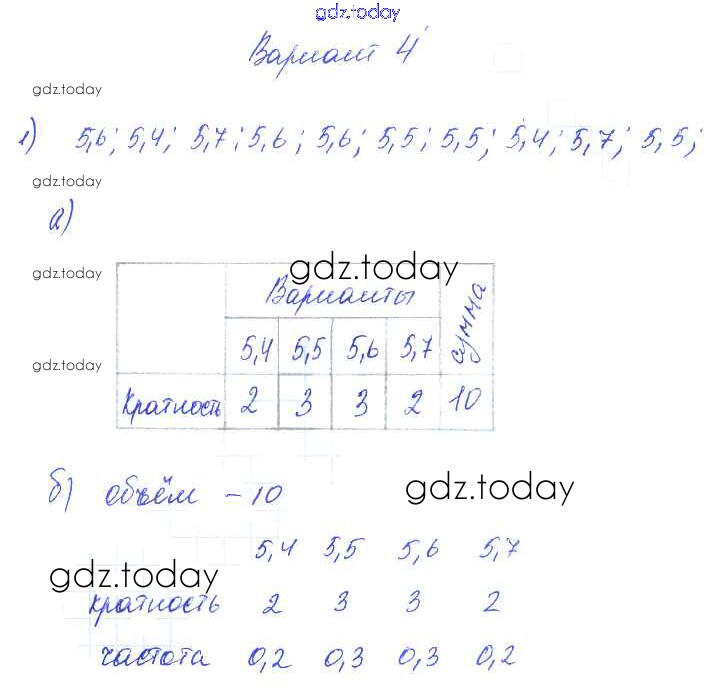 gdz.today
Вариант 4
gdz.today
1) 5,6; 5,4; 5,7; 5,6; 5,6; 5,5; 5,5; 5,4; 5,7; 5,5;
gdz.today
а)
gdz.today gdz.today
Варианты сумма
5,4 5,5 5,6 5,7
gdz.today
Кратность 2 3 3 2 10
б) объём – 10 gdz.today
5,4 5,5 5,6 5,7
gdz.today
кратность 2 3 3 2
частота 0,2 0,3 0,3 0,2